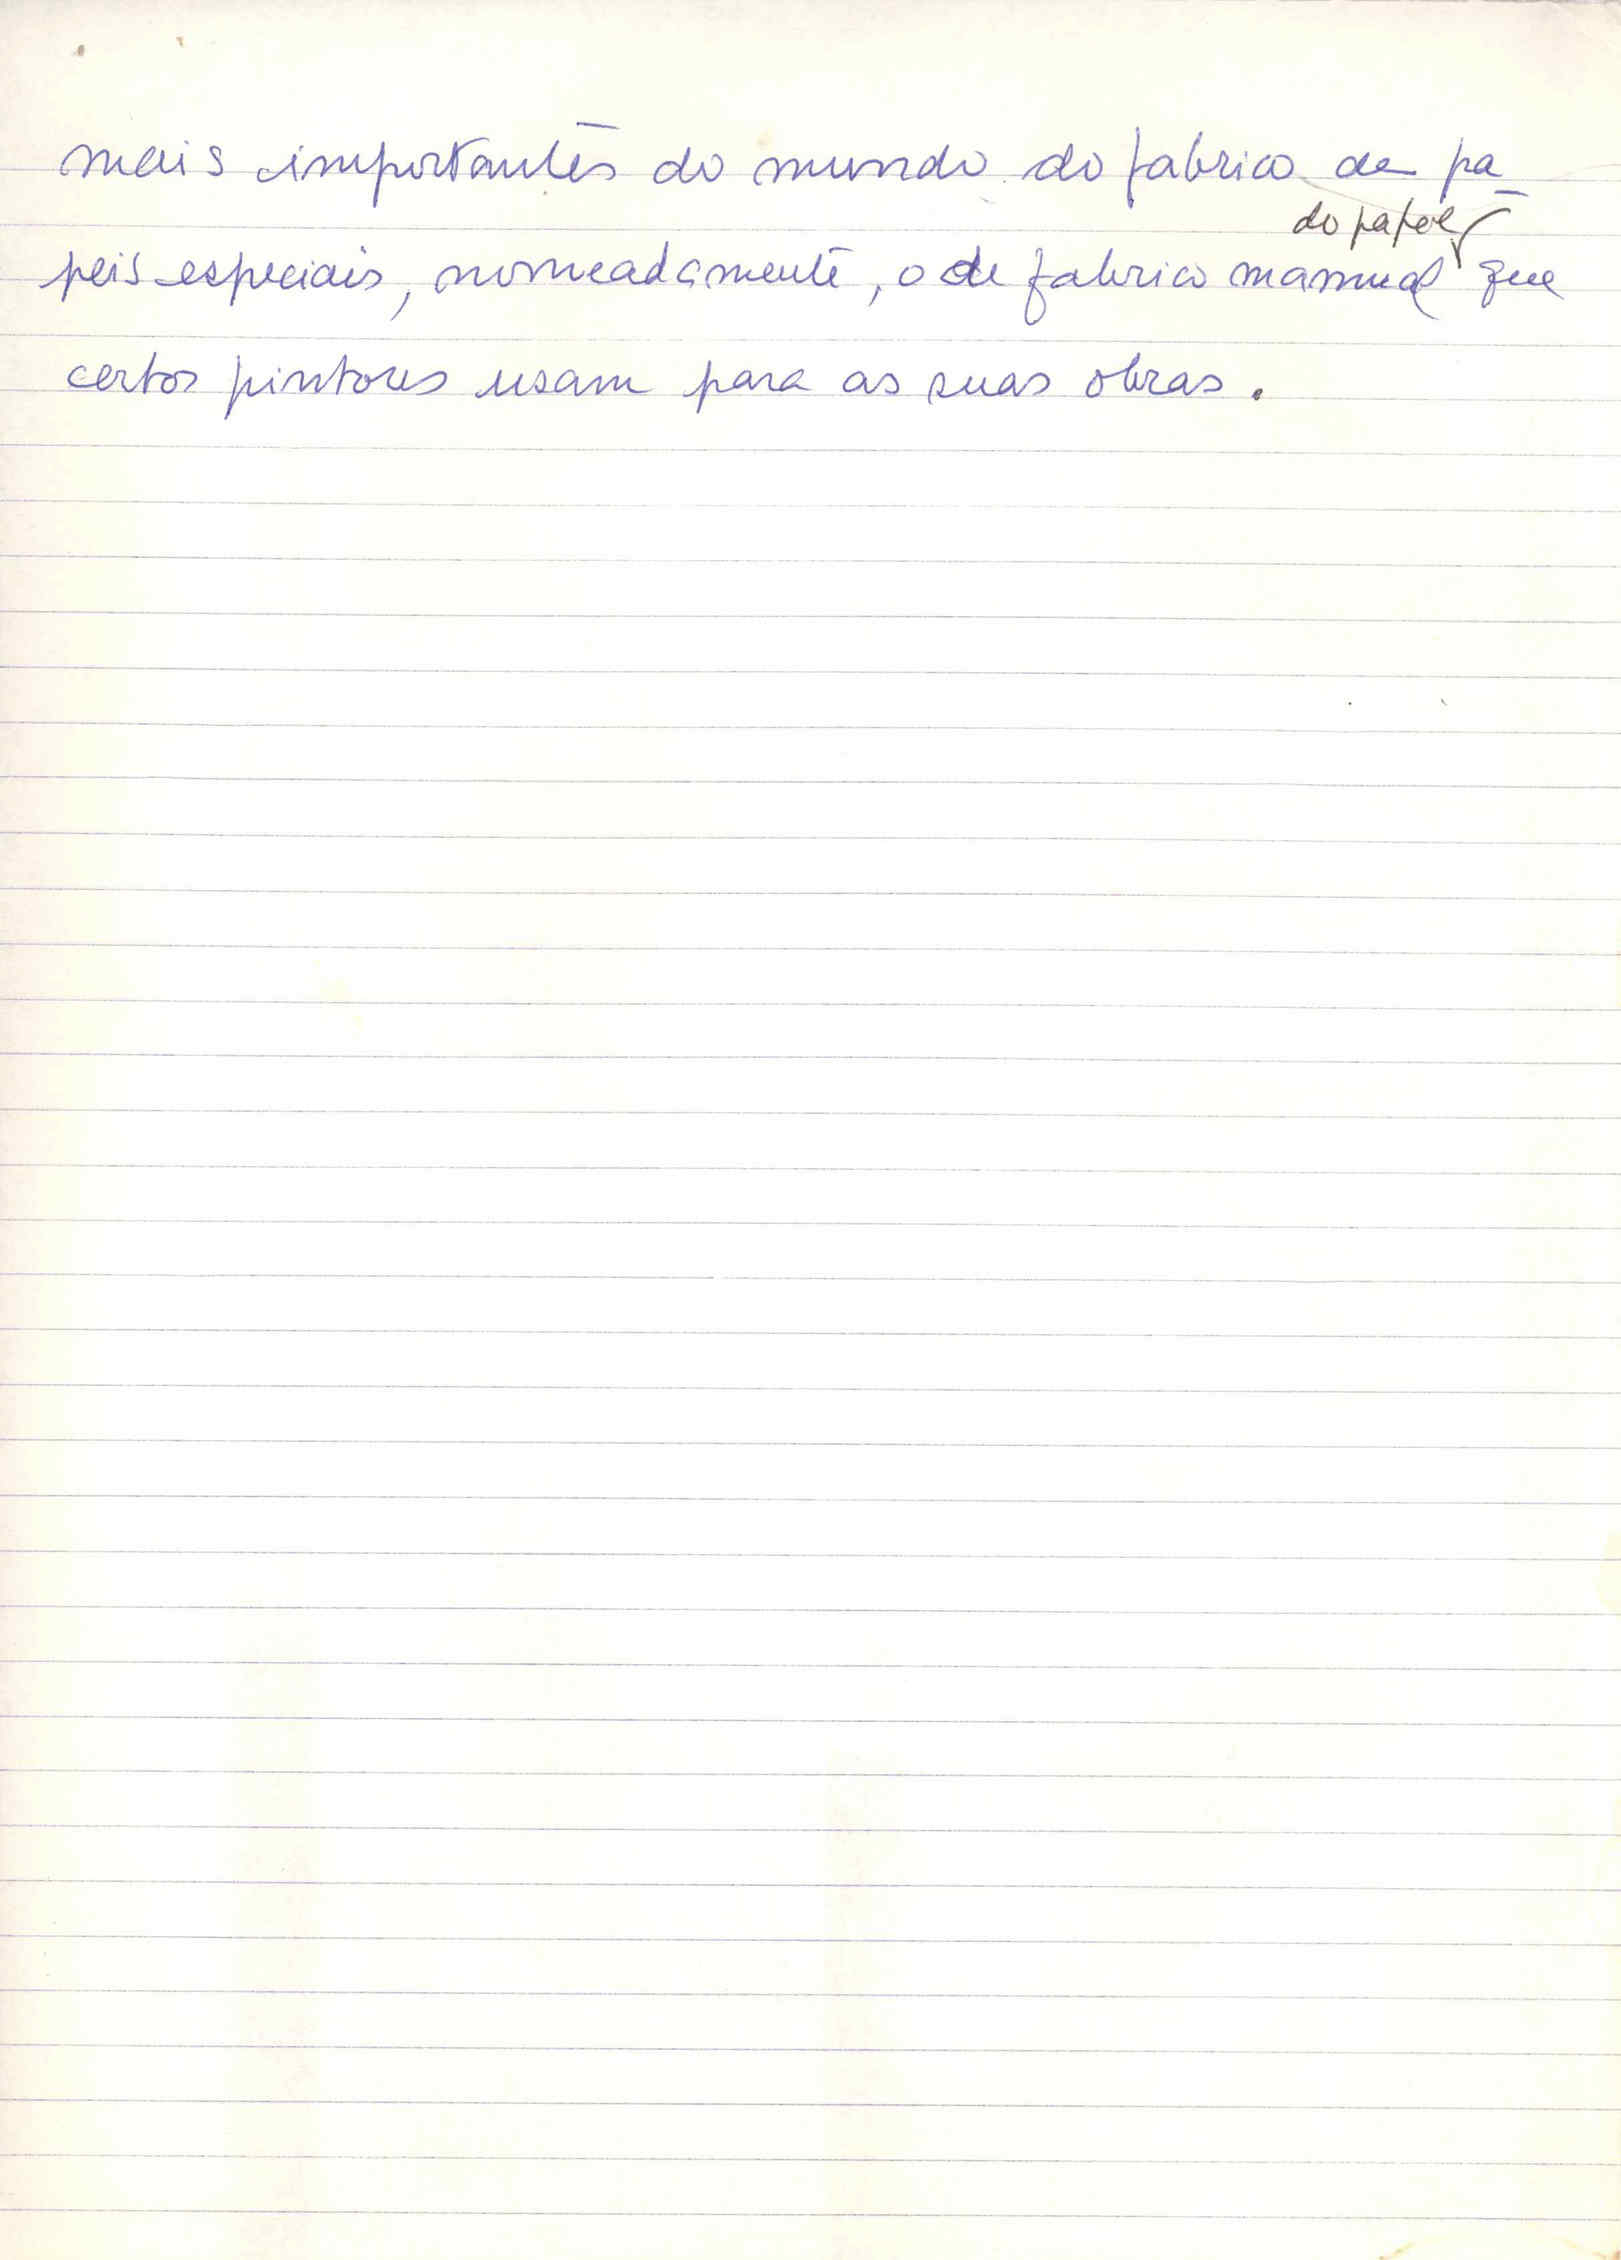 mais importantes do mundo do fabrico de pa-
do papel
peis especiais, nomeadamente, o de fabrico manual que
certos pintores usam para as suas obras.